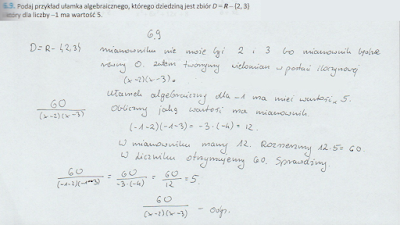 6.9. Podaj przykład ułamka algebraicznego, którego dziedziną jest zbiór D = R − {2, 3}
który dla liczby −1 ma wartość 5.
6.9
D = R − {2,3} mianowniku nie może być 2 i 3 bo mianownik będzie
równy 0. zatem tworzymy wielomian w postaci iloczynowej
(x−2)(x−3).
Ułamek algebraiczny dla −1 ma mieć wartość 5.
60/(x−2)(x−3) Obliczmy jaką wartość ma mianownik
(−1−2)(−1−3) = −3·(−4) = 12.
W mianowniku mamy 12. Rozszerzmy 12·5 = 60.
W liczniku otrzymujemy 60. Sprawdźmy.
60/(−1−2)(−1−3) = 60/−3·(−4) = 60/12 = 5.
60/(x−2)(x−3) – odp.